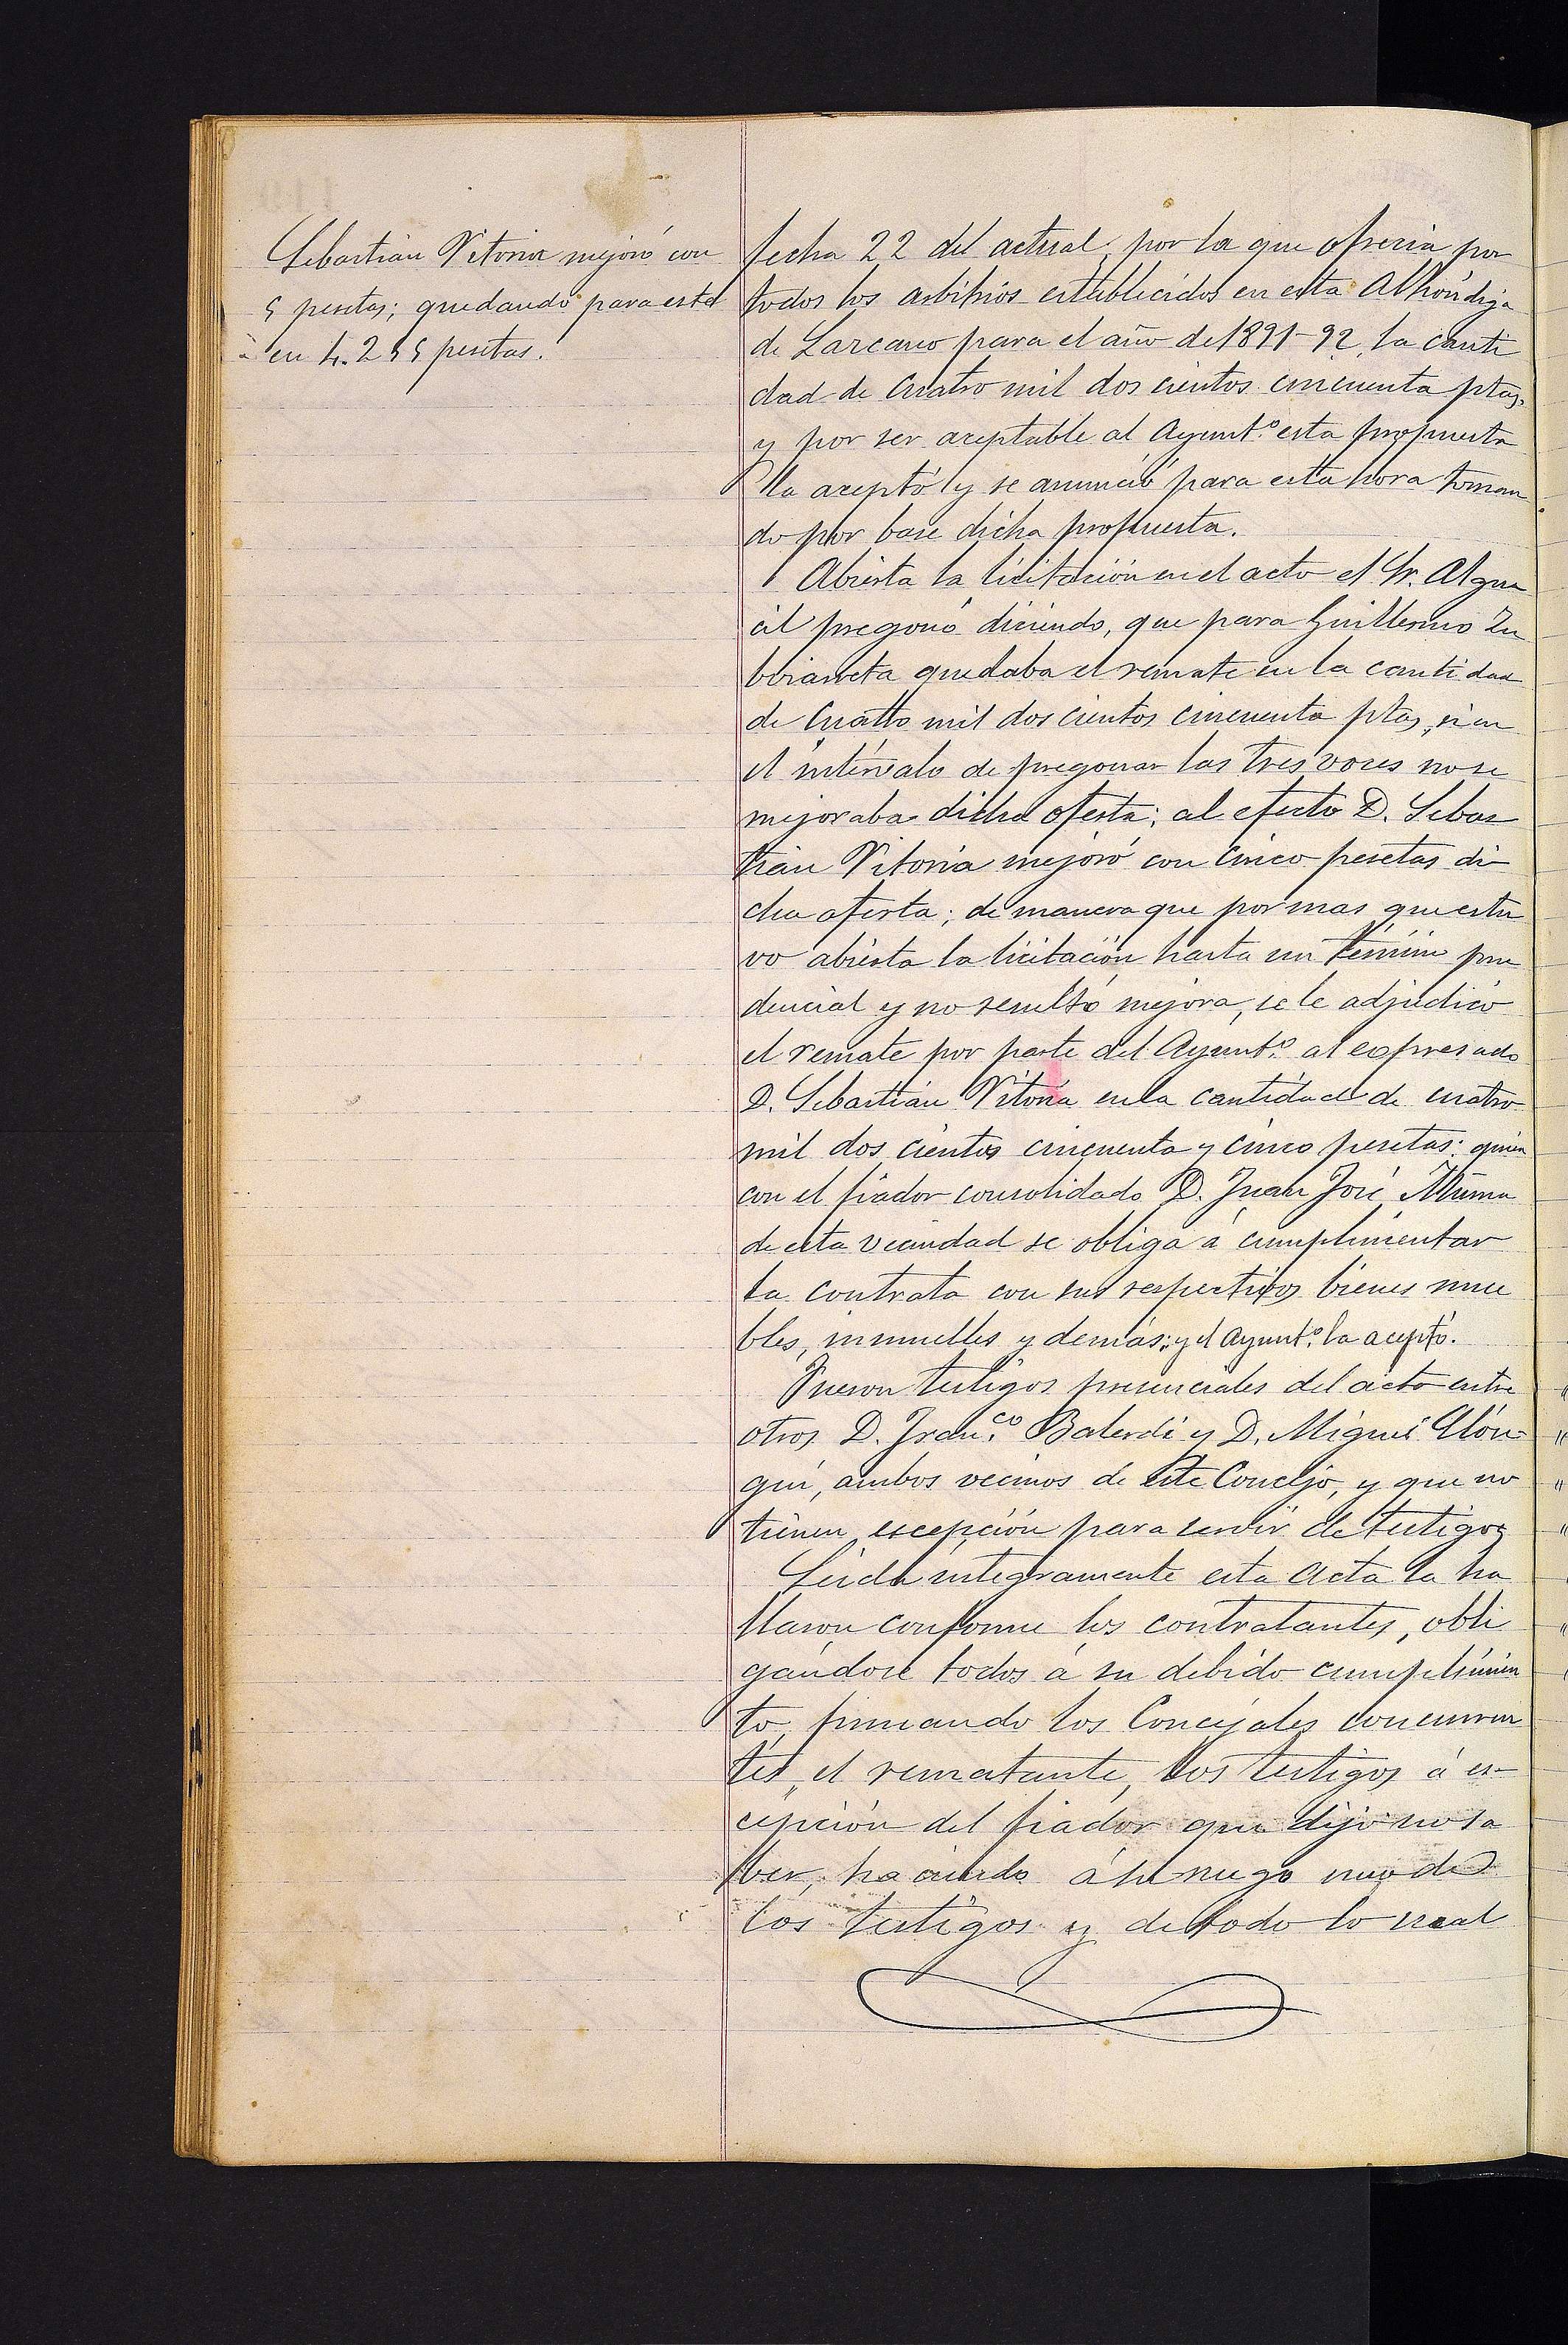 Sebastián Vitoria mejoró con
5 pesetas; quedando para este
en 4.255 pesetas.
fecha 22 del actual, por la que ofrecia por
todos los arbitrios establecidos en esta Alhóndiga
de Lazcano para el año de 1891-92, la canti
dad de cuatro mil dos cientos cincuenta ptas,
y por ser aceptable al Ayunt.º esta propuesta
la aceptó y se anunció para esta hora toman
do por base dicha propuesta.
Abierta la licitación en el acto el Sr. Algua
cil pregonó diciendo, que para Guillermo Zu
biarreta quedaba el remate en la cantidad
de cuatro mil dos cientos cincuenta ptas, si en
el intérvalo de pregonar las tres voces no se
mejoraba dicha oferta; al efecto D. Sebas
tián Vitoria mejoró con cinco pesetas di-
cha oferta; de manera que por mas que estu
vo abierta la licitación hasta un término pru
dencial y no resultó mejora, se le adjudicó
el remate por parte del Ayunt.º al expresado
D. Sebastián Vitoria en la cantidad de cuatro
mil dos cientos cincuenta y cinco pesetas: quien
con el fiador consolidado D. Juan José
de esta vecindad se obliga á cumplimentar
la contrata con sus respectivos bienes mue
bles, inmuebles y demás; y el Ayunt.º la aceptó.
Fueron testigos presenciales del acto entre
otros D. Fran.co Balerdi y D. Miguel Elós
gui, ambos vecinos de este Concejo, y que no
tienen escepción para servir de testigos
Leida integramente esta acta la ha
llaron conforme los contratantes, obli
gándose todos á su debido cumplimien
to, firmando los Concejales concurren
tes, el rematante, los testigos á es-
cepción del fiador que dijo no sa
ber, haciendo á su ruego uno de
los testigos y de todo lo cual